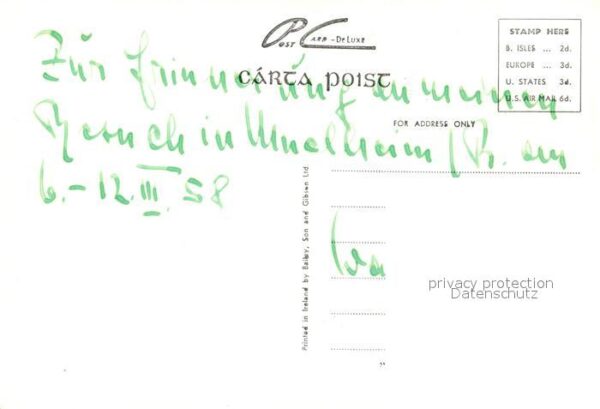 Post Card - DeLuxe
CÁRTA POIST
STAMP HERE
B. ISLES ... 2d.
EUROPE ... 3d.
U. STATES 3d.
U.S. AIR MAIL 6d.
FOR ADDRESS ONLY
Zur Erinnerung an meinen
Besuch in Muelheim / R. am
6.-12. III. 58
Printed in Ireland by Bailey, Son and Gibson Ltd.
privacy protection
Datenschutz